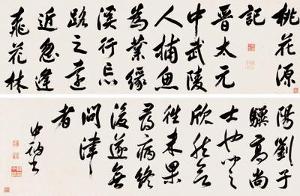 桃花源
記
晉太元
中武陵
人捕魚
為業緣
溪行忘
路之遠
近忽逢
桃花林
陽劉子
驥高尚
士也聞
欣然規
往未果
尋病終
後遂無
問津
者